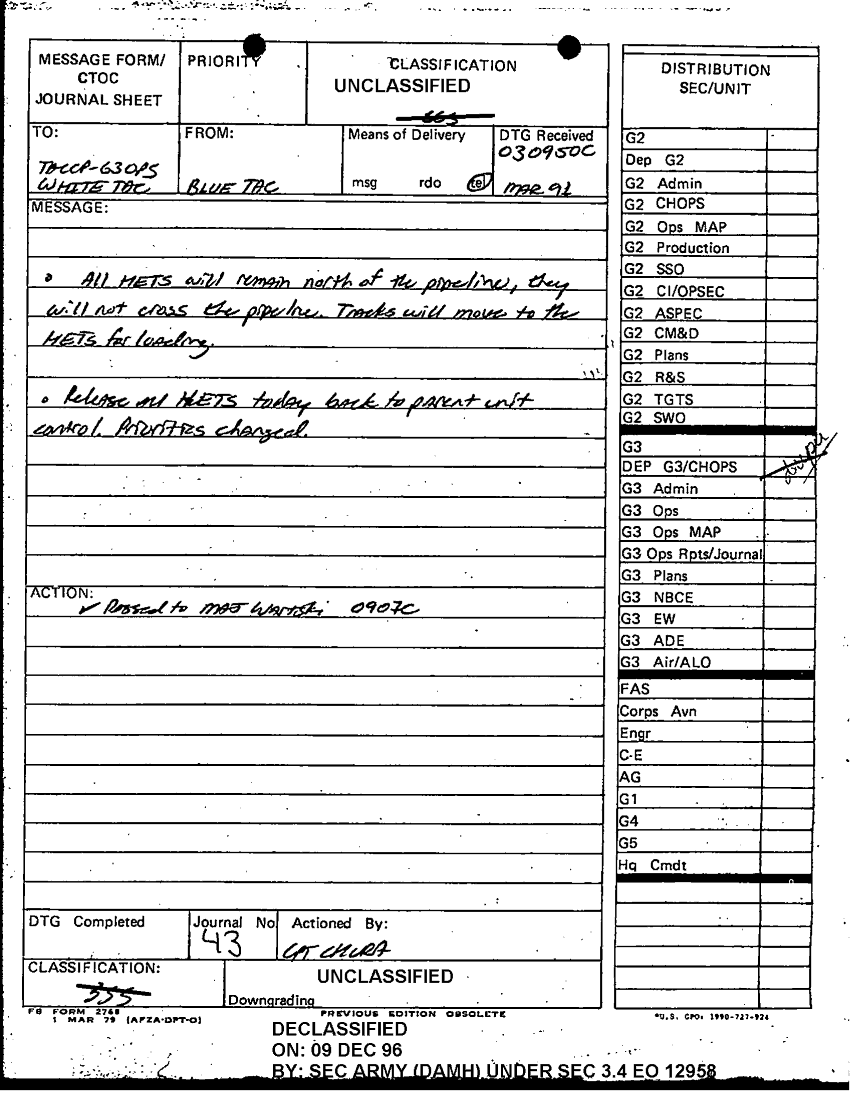 MESSAGE FORM/
CTOC
JOURNAL SHEET
PRIORITY
CLASSIFICATION
UNCLASSIFIED
TO:
TACCP-G3OPS
WHITE TAC
FROM:
BLUE TAC
Means of Delivery
msg rdo tel
DTG Received
030950C
MAR 91
MESSAGE:
• All HETS will remain north of the pipeline, they
will not cross the pipeline. Tracks will move to the
HETS for loading.
• Release all HETS today back to parent unit
control. Priorities changed.
ACTION:
✓ Passed to MAJ 0907C
DTG Completed
Journal No
43
Actioned By:
CPT
CLASSIFICATION:
UNCLASSIFIED
Downgrading
FB FORM 2768
1 MAR 79 (AFZA-DPT-O)
PREVIOUS EDITION OBSOLETE
DECLASSIFIED
ON: 09 DEC 96
BY: SEC ARMY (DAMH) UNDER SEC 3.4 EO 12958
DISTRIBUTION
SEC/UNIT
G2
Dep G2
G2 Admin
G2 CHOPS
G2 Ops MAP
G2 Production
G2 SSO
G2 CI/OPSEC
G2 ASPEC
G2 CM&D
G2 Plans
G2 R&S
G2 TGTS
G2 SWO
G3
DEP G3/CHOPS
G3 Admin
G3 Ops
G3 Ops MAP
G3 Ops Rpts/Journal
G3 Plans
G3 NBCE
G3 EW
G3 ADE
G3 Air/ALO
FAS
Corps Avn
Engr
C-E
AG
G1
G4
G5
Hq Cmdt
*U.S. GPO: 1990-727-924